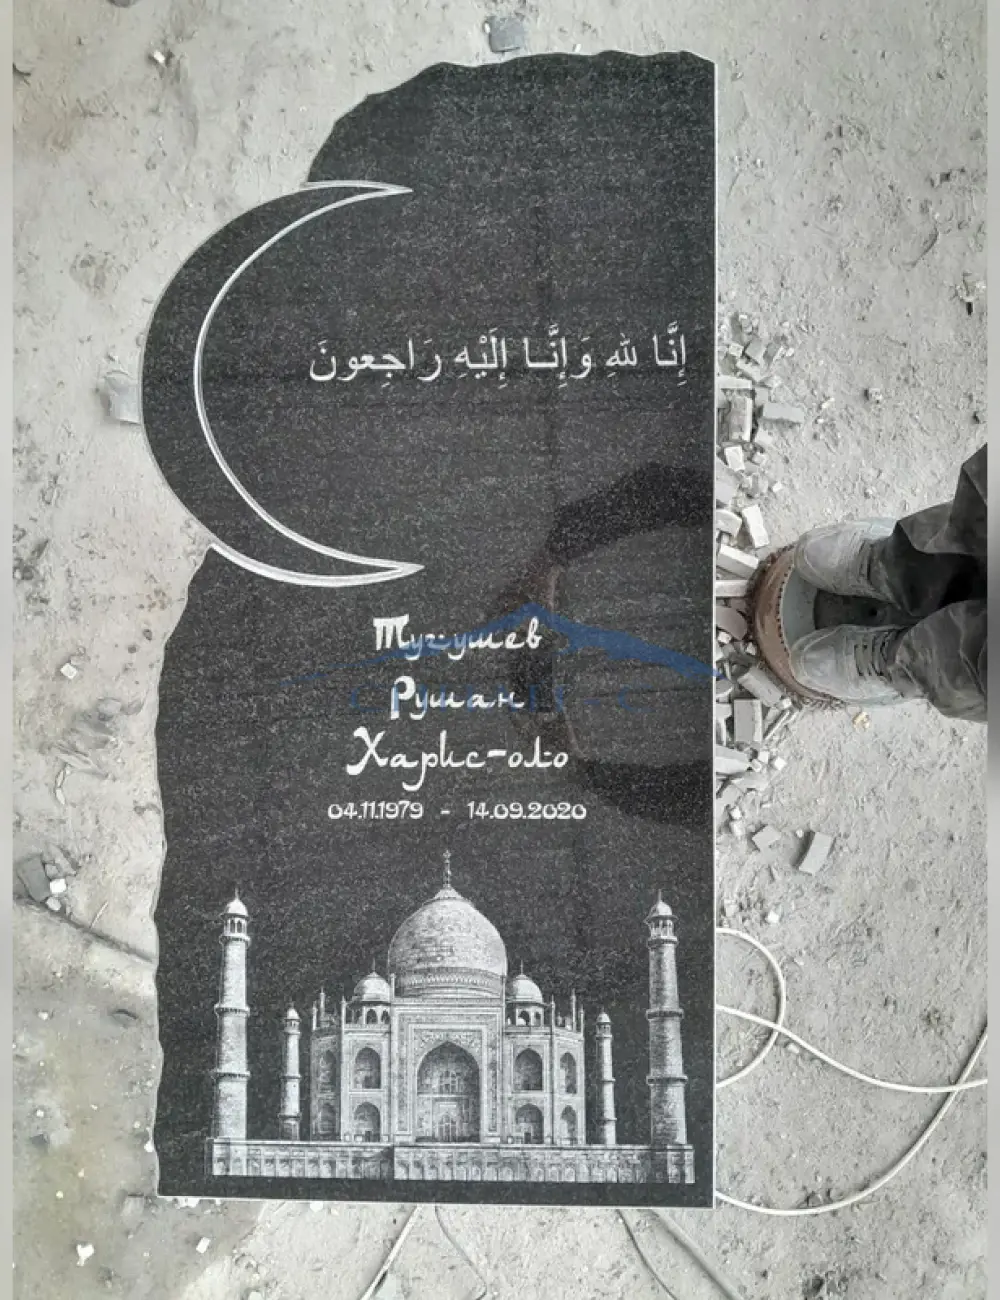 إِنَّا لله وَإِنَّـا إِلَيْهِ رَاجِعونَ
Тугушев
Рушан
Харис-оло
04.11.1979 - 14.09.2020